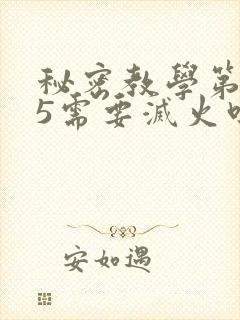 秘密教學第
5需要滅火
安如遇